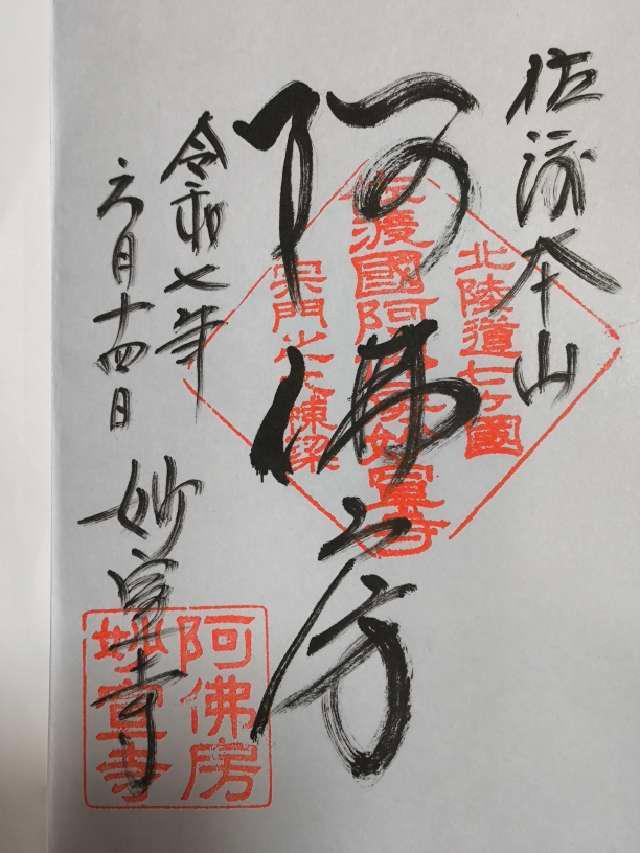 佐渡本山
阿佛房
令和七年
六月十四日
妙宣寺
北陸道七ヶ國
佐渡國阿佛房妙宣寺
宗門之棟梁
阿佛房
妙宣寺